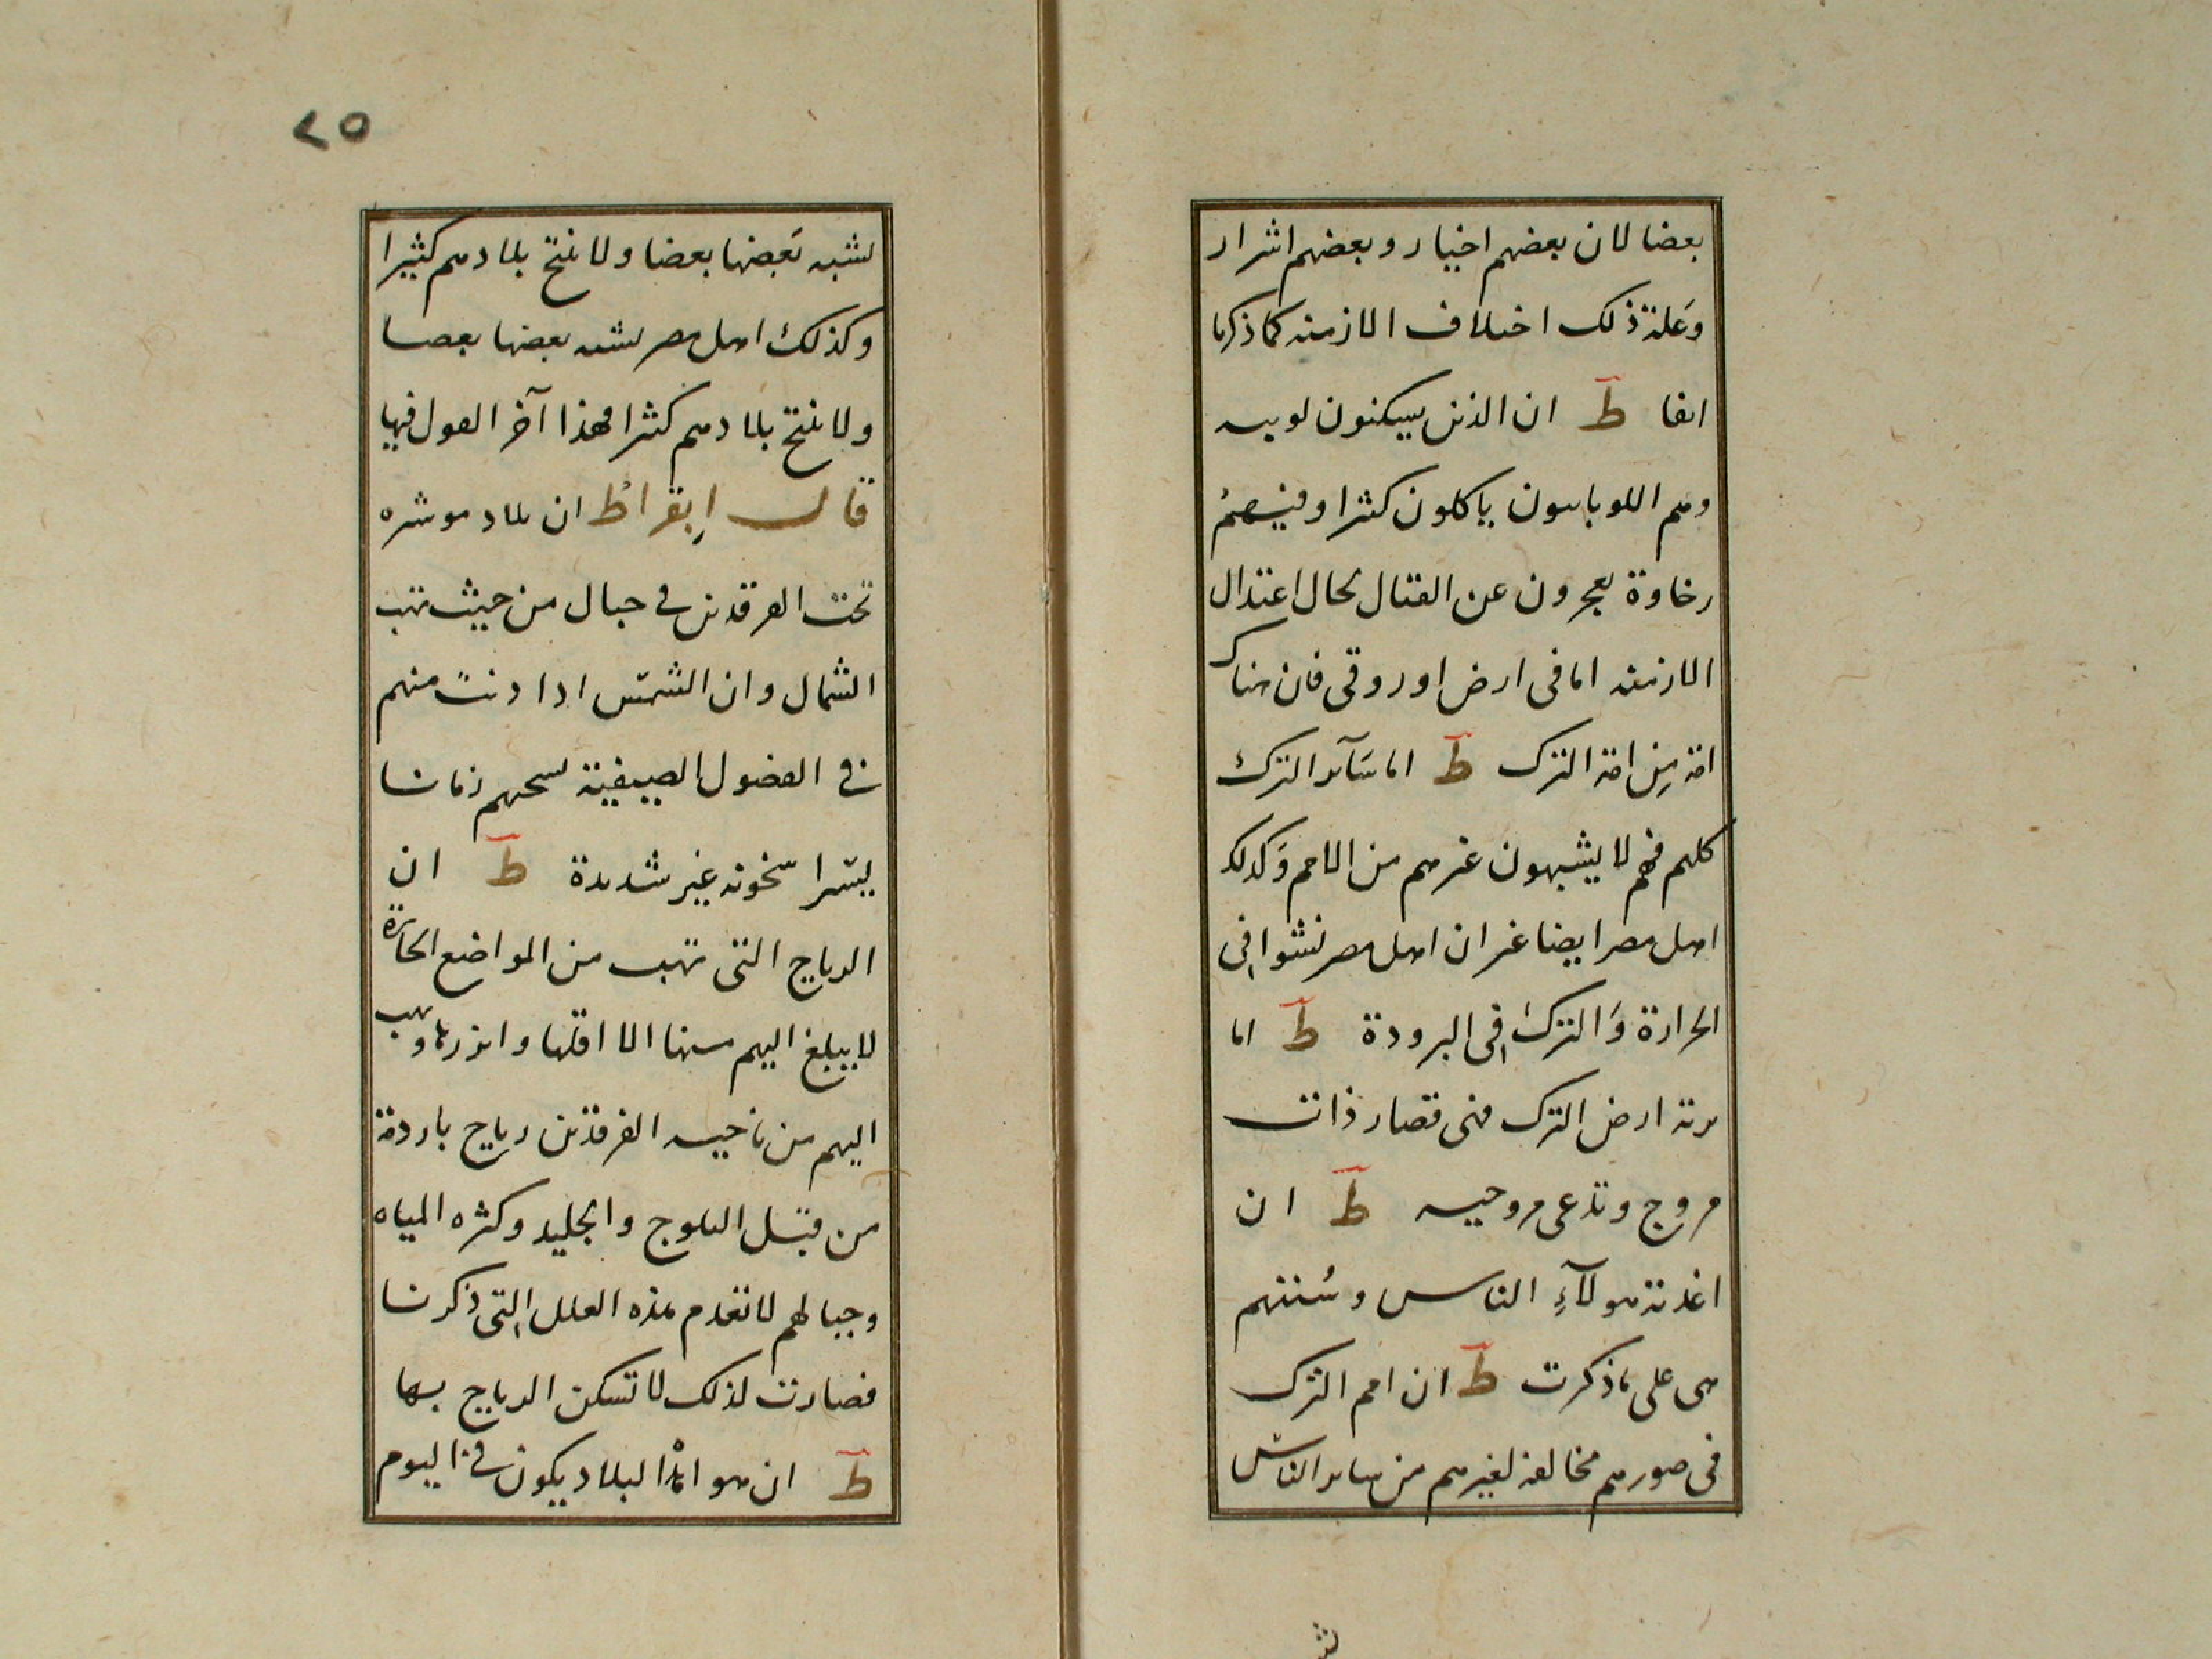 بعضا لان بعضهم اخيار وبعضهم اشرار
وَعلة ذلك اختلاف الازمنه كما ذكرنا
انفا ط ان الذين يسكنون لوبيه
وهم اللوباسون ياكلون كثيرا وفيهم
رخاوة يعجزون عن القتال بحال اعتدال
الازمنه اما فى ارض اوروقى فان هناك
امة مِن امة الترك ط اما سَآئر الترك
كلهم فهم لا يشبهون غيرهم من الامم وَكذلك
اهل مصر ايضا غير ان اهل مصر نشوا فِى
الحرارة وَالترك فِى البرودة ط اما
برية ارض الترك فهى قصار ذات
مروج وتدعى مروجيه ط ان
اغذية هولآءِ الناس وسُننهم
هى على ما ذكرت ط ان امم الترك
فى صورهم مخالفة لغيرهم من ساير الناس
ش
٢٥
يشبه بَعضها بعضا ولا ينتج بلادهم كثيرا
وكذلك اهل مصر يشبه بعضها بعضا
ولا ينتج بلادهم كثيرا فهذا آخر القول فيها
قال اِبقراط ان بلاد موشره
تحت الفرقدين فى جبال من حيث تهب
الشمال وان الشمس اذا دنت منهم
فى الفصول الصيفية تسخنهم زمانا
يسيرا سخونه غير شديدة ط ان
الرياح التى تهب من المواضع الحارة
لا يبلغ اليهم منها الا اقلها وانزرها وتهب
اليهم من ناحيه الفرقدين رياح باردة
من قبل الثلوج والجليد وكثره المياه
وجبالهم لا تعدم هذه العلل التى ذكرنا
فصارت لذلك لا تسكن الرياح بها
ط ان هوا هذا البلاد يكون فى اليوم